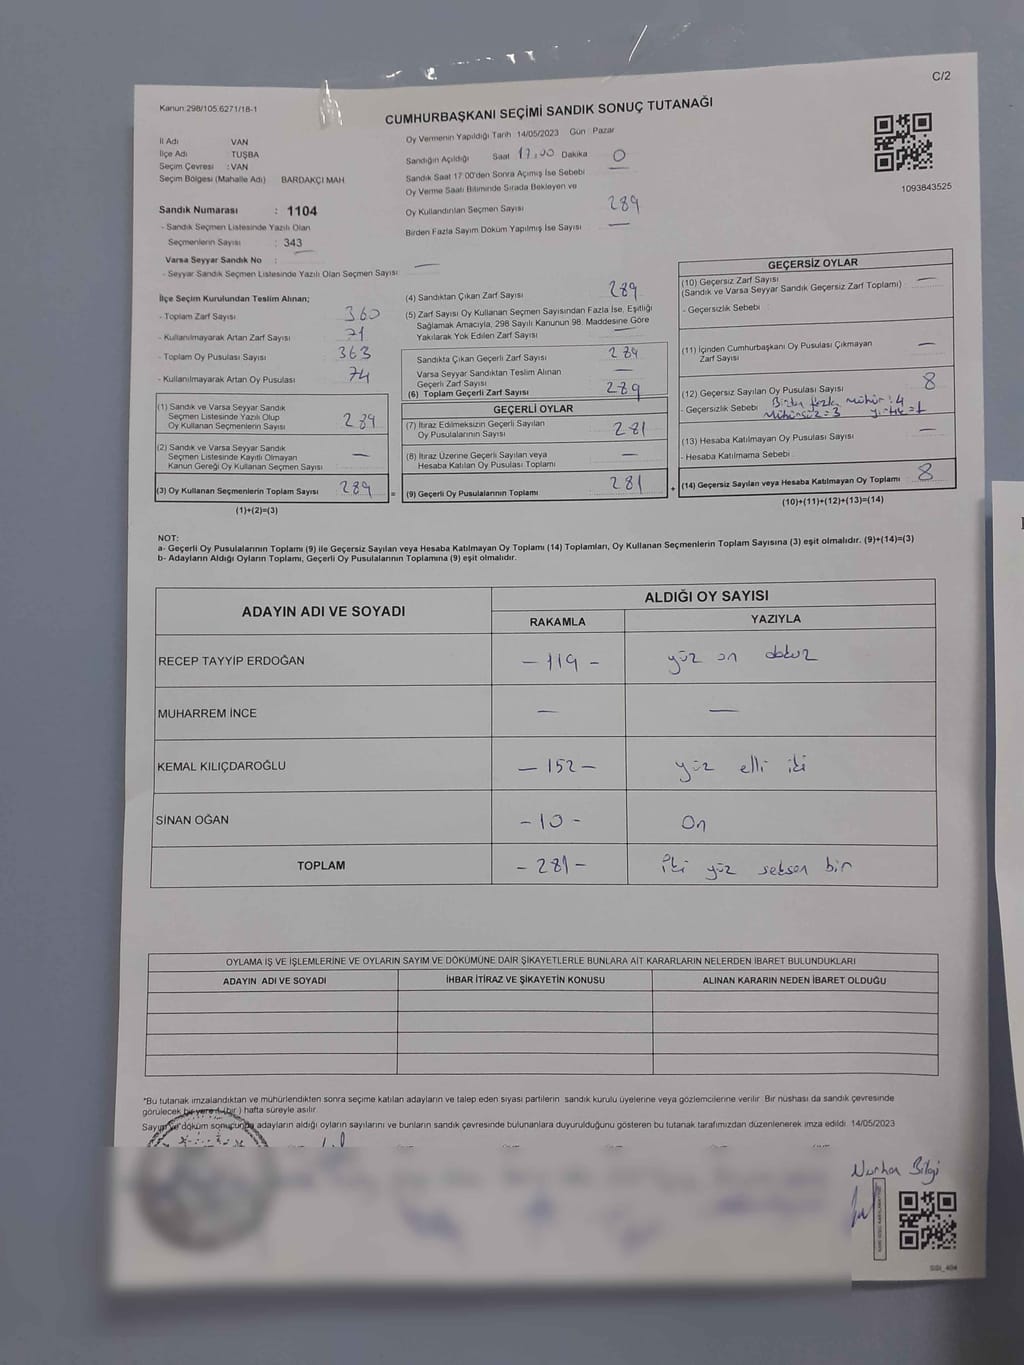 C/2
Kanun:298/105.6271/18-1
CUMHURBAŞKANI SEÇİMİ SANDIK SONUÇ TUTANAĞI
İl Adı VAN
İlçe Adı TUŞBA
Seçim Çevresi : VAN
Seçim Bölgesi (Mahalle Adı) BARDAKÇI MAH
Sandık Numarası : 1104
- Sandık Seçmen Listesinde Yazılı Olan
Seçmenlerin Sayısı : 343
Varsa Seyyar Sandık No :
- Seyyar Sandık Seçmen Listesinde Yazılı Olan Seçmen Sayısı —
Oy Vermenin Yapıldığı Tarih : 14/05/2023 Gün Pazar
Sandığın Açıldığı Saat 17:00 Dakika 0
Sandık Saat 17:00'den Sonra Açımış İse Sebebi —
Oy Verme Saati Bitiminde Sırada Bekleyen ve
Oy Kullandırılan Seçmen Sayısı 289
Birden Fazla Sayım Döküm Yapılmış İse Sayısı —
1093843525
İlçe Seçim Kurulundan Teslim Alınan;
- Toplam Zarf Sayısı 360
- Kullanılmayarak Artan Zarf Sayısı 71
- Toplam Oy Pusulası Sayısı 363
- Kullanılmayarak Artan Oy Pusulası 74
(1) Sandık ve Varsa Seyyar Sandık
Seçmen Listesinde Yazılı Olup
Oy Kullanan Seçmenlerin Sayısı 289
(2) Sandık ve Varsa Seyyar Sandık
Seçmen Listesinde Kayıtlı Olmayan
Kanun Gereği Oy Kullanan Seçmen Sayısı —
(3) Oy Kullanan Seçmenlerin Toplam Sayısı 289 =
(1)+(2)=(3)
(4) Sandıktan Çıkan Zarf Sayısı 289
(5) Zarf Sayısı Oy Kullanan Seçmen Sayısından Fazla İse, Eşitliği
Sağlamak Amacıyla, 298 Sayılı Kanunun 98. Maddesine Göre
Yakılarak Yok Edilen Zarf Sayısı —
Sandıkta Çıkan Geçerli Zarf Sayısı 289
Varsa Seyyar Sandıktan Teslim Alınan
Geçerli Zarf Sayısı —
(6) Toplam Geçerli Zarf Sayısı 289
GEÇERLİ OYLAR
(7) İtiraz Edilmeksizin Geçerli Sayılan
Oy Pusulalarının Sayısı 281
(8) İtiraz Üzerine Geçerli Sayılan veya
Hesaba Katılan Oy Pusulası Toplamı —
(9) Geçerli Oy Pusulalarının Toplamı 281 +
GEÇERSİZ OYLAR
(10) Geçersiz Zarf Sayısı —
(Sandık ve Varsa Seyyar Sandık Geçersiz Zarf Toplamı) :
- Geçersizlik Sebebi :
(11) İçinden Cumhurbaşkanı Oy Pusulası Çıkmayan
Zarf Sayısı —
(12) Geçersiz Sayılan Oy Pusulası Sayısı 8
- Geçersizlik Sebebi Birden fazla mühür : 4
Mühürsüz = 3 yırtık = 1
(13) Hesaba Katılmayan Oy Pusulası Sayısı —
- Hesaba Katılmama Sebebi
(14) Geçersiz Sayılan veya Hesaba Katılmayan Oy Toplamı 8
(10)+(11)+(12)+(13)=(14)
NOT:
a- Geçerli Oy Pusulalarının Toplamı (9) ile Geçersiz Sayılan veya Hesaba Katılmayan Oy Toplamı (14) Toplamları, Oy Kullanan Seçmenlerin Toplam Sayısına (3) eşit olmalıdır. (9)+(14)=(3)
b- Adayların Aldığı Oyların Toplamı, Geçerli Oy Pusulalarının Toplamına (9) eşit olmalıdır.
ADAYIN ADI VE SOYADI
ALDIĞI OY SAYISI
RAKAMLA YAZIYLA
RECEP TAYYİP ERDOĞAN - 119 - yüz on dokuz
MUHARREM İNCE — —
KEMAL KILIÇDAROĞLU - 152 - yüz elli iki
SİNAN OĞAN - 10 - On
TOPLAM - 281 - iki yüz seksen bir
OYLAMA İŞ VE İŞLEMLERİNE VE OYLARIN SAYIM VE DÖKÜMÜNE DAİR ŞİKAYETLERLE BUNLARA AİT KARARLARIN NELERDEN İBARET BULUNDUKLARI
ADAYIN ADI VE SOYADI İHBAR İTİRAZ VE ŞİKAYETİN KONUSU ALINAN KARARIN NEDEN İBARET OLDUĞU
*Bu tutanak imzalandıktan ve mühürlendikten sonra seçime katılan adayların ve talep eden siyasi partilerin sandık kurulu üyelerine veya gözlemcilerine verilir. Bir nüshası da sandık çevresinde
görülecek bir yere 1 (bir) hafta süreyle asılır.
Sayım ve döküm sonucunda adayların aldığı oyların sayılarını ve bunların sandık çevresinde bulunanlara duyurulduğunu gösteren bu tutanak tarafımızdan düzenlenerek imza edildi. 14/05/2023
Nurhan Bilgi